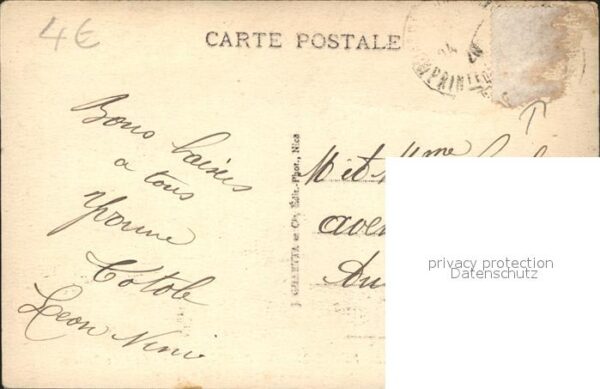 4€
CARTE POSTALE
IMPRIMÉS
Bons baisers
a tous
Yvonne
Totole
Leon Nini
J. GILLETTA et Cie, Édit.-Phot., Nice
M et Mme
aven
privacy protection
Datenschutz